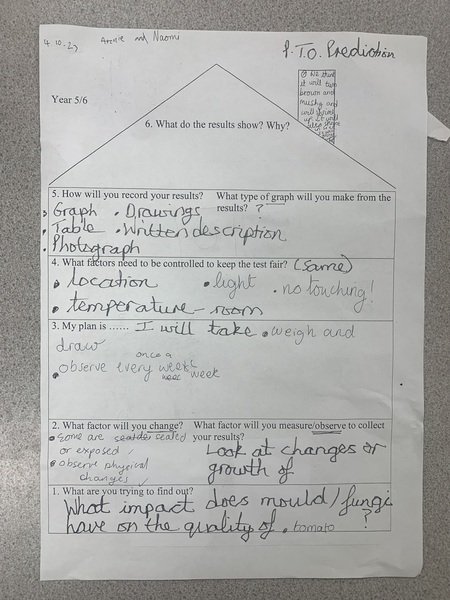 4.10.23 Archie and Naomi
P.T.O. Prediction
We think
it will turn
brown and
mushy and
will
up it will
Year 5/6
6. What do the results show? Why?
5. How will you record your results? What type of graph will you make from the
results? ?
• Graph • Drawings
• Table • Written description
• Photograph
4. What factors need to be controlled to keep the test fair? (same)
• location • light • no touching!
• temperature - room
3. My plan is …… I will take • weigh and
draw
once a
• observe every week
week week
2. What factor will you change? What factor will you measure/observe to collect
your results?
• Some are sealed
or exposed
• observe physical
changes
Look at changes or
growth of
1. What are you trying to find out?
What impact does mould/fungi
have on the quality of • tomato ?